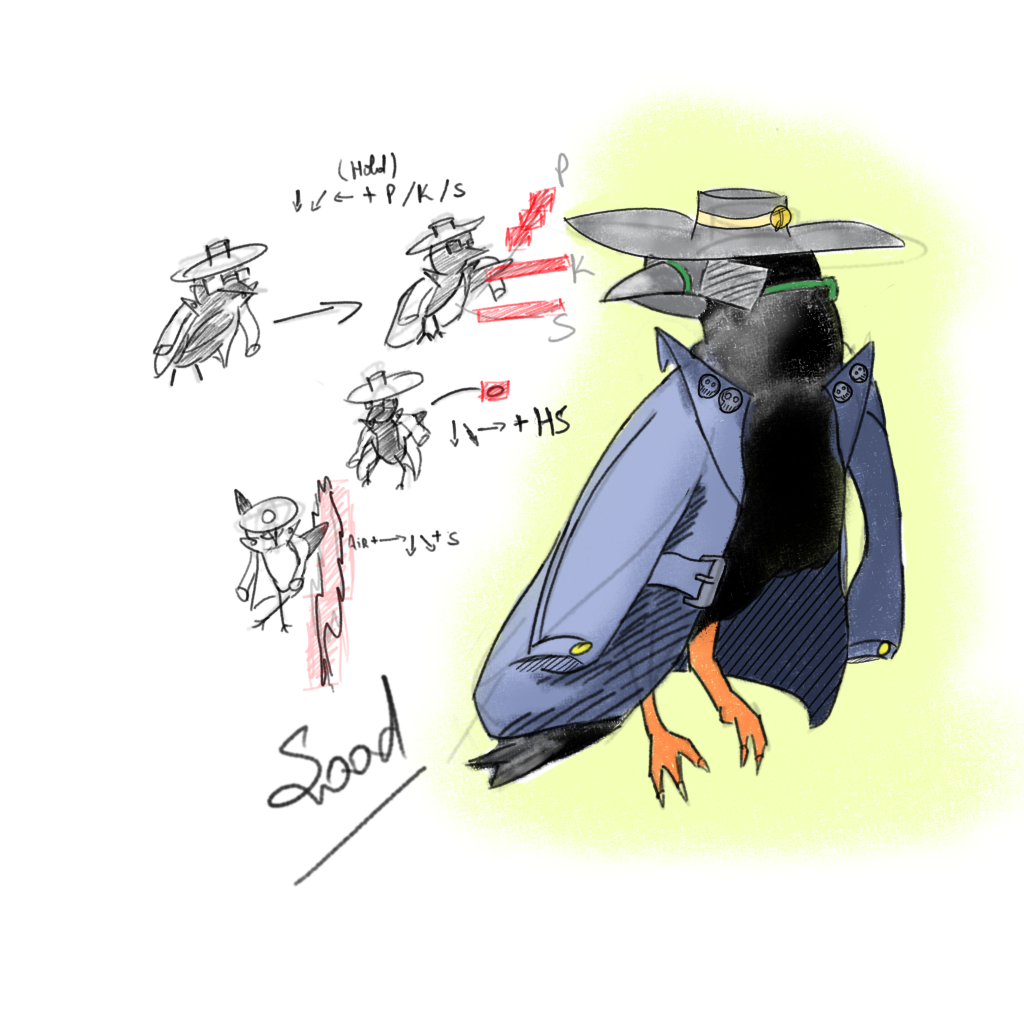 (Hold)
↓ ↙ ← + P / K / S
P
K
S
↓ ↘ → + HS
AiR + → ↓ ↘ + S
Sood